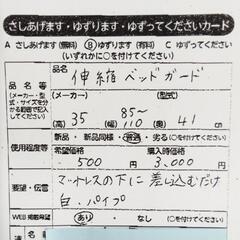 さしあげます・ゆずります・ゆずってくださいカード
A さしあげます(無料) B ゆずります(有料) C ゆずってください
(いずれかに○で囲んでください)
品名等
(メーカー・型式・サイズを分かる範囲で記入してください)
(品名)
伸縮ベッドガード
(メーカー) (型式)
高 35 85~110 奥 41 cm
使用程度等
新・新品同様・普通・劣る(○をしてください)
希望価格 購入時価格
500円 3,000円
要望・伝言
マットレスの下に差し込むだけ
白・パイプ
WEB掲載希望 あり・なし(○をしてください)